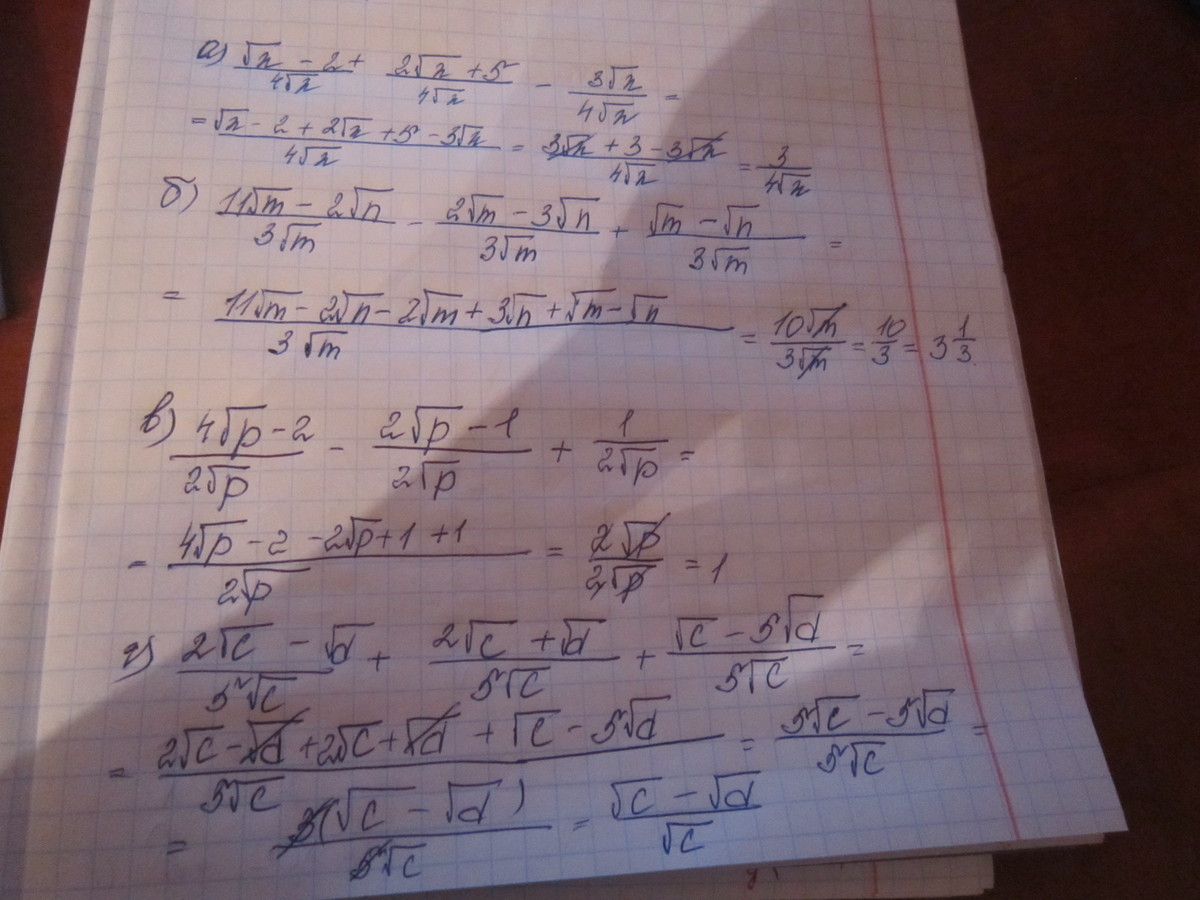 а) (√x - 2)/(4√x) + (2√x + 5)/(4√x) - (3√x)/(4√x) =
= (√x - 2 + 2√x + 5 - 3√x)/(4√x) = (3√x + 3 - 3√x)/(4√x) = 3/(4√x)
б) (11√m - 2√n)/(3√m) - (2√m - 3√n)/(3√m) + (√m - √n)/(3√m) =
= (11√m - 2√n - 2√m + 3√n + √m - √n)/(3√m) = (10√m)/(3√m) = 10/3 = 3 1/3
в) (4√p - 2)/(2√p) - (2√p - 1)/(2√p) + 1/(2√p) =
= (4√p - 2 - 2√p + 1 + 1)/(2√p) = (2√p)/(2√p) = 1
г) (2√c - √d)/(5√c) + (2√c + √d)/(5√c) + (√c - 5√d)/(5√c) =
= (2√c - √d + 2√c + √d + √c - 5√d)/(5√c) = (5√c - 5√d)/(5√c) =
= (5(√c - √d))/(5√c) = (√c - √d)/(√c)